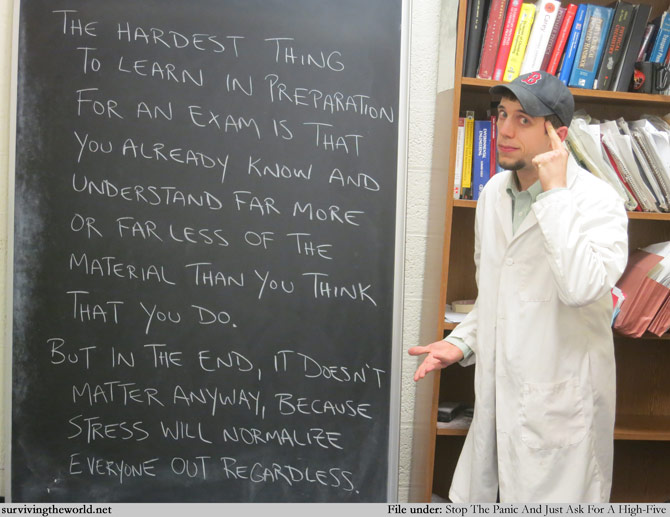 THE HARDEST THING
TO LEARN IN PREPARATION
FOR AN EXAM IS THAT
YOU ALREADY KNOW AND
UNDERSTAND FAR MORE
OR FAR LESS OF THE
MATERIAL THAN YOU THINK
THAT YOU DO.
BUT IN THE END, IT DOESN'T
MATTER ANYWAY, BECAUSE
STRESS WILL NORMALIZE
EVERYONE OUT REGARDLESS.
survivingtheworld.net
File under: Stop The Panic And Just Ask For A High-Five